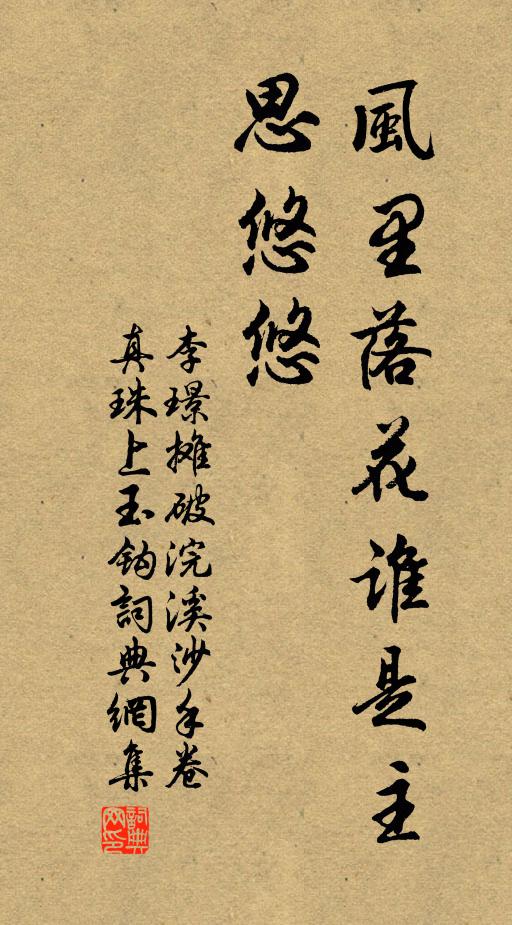 風里落花誰是主
思悠悠
李璟攤破浣溪沙手卷
真珠上玉鈎詞典網集
詞典网印